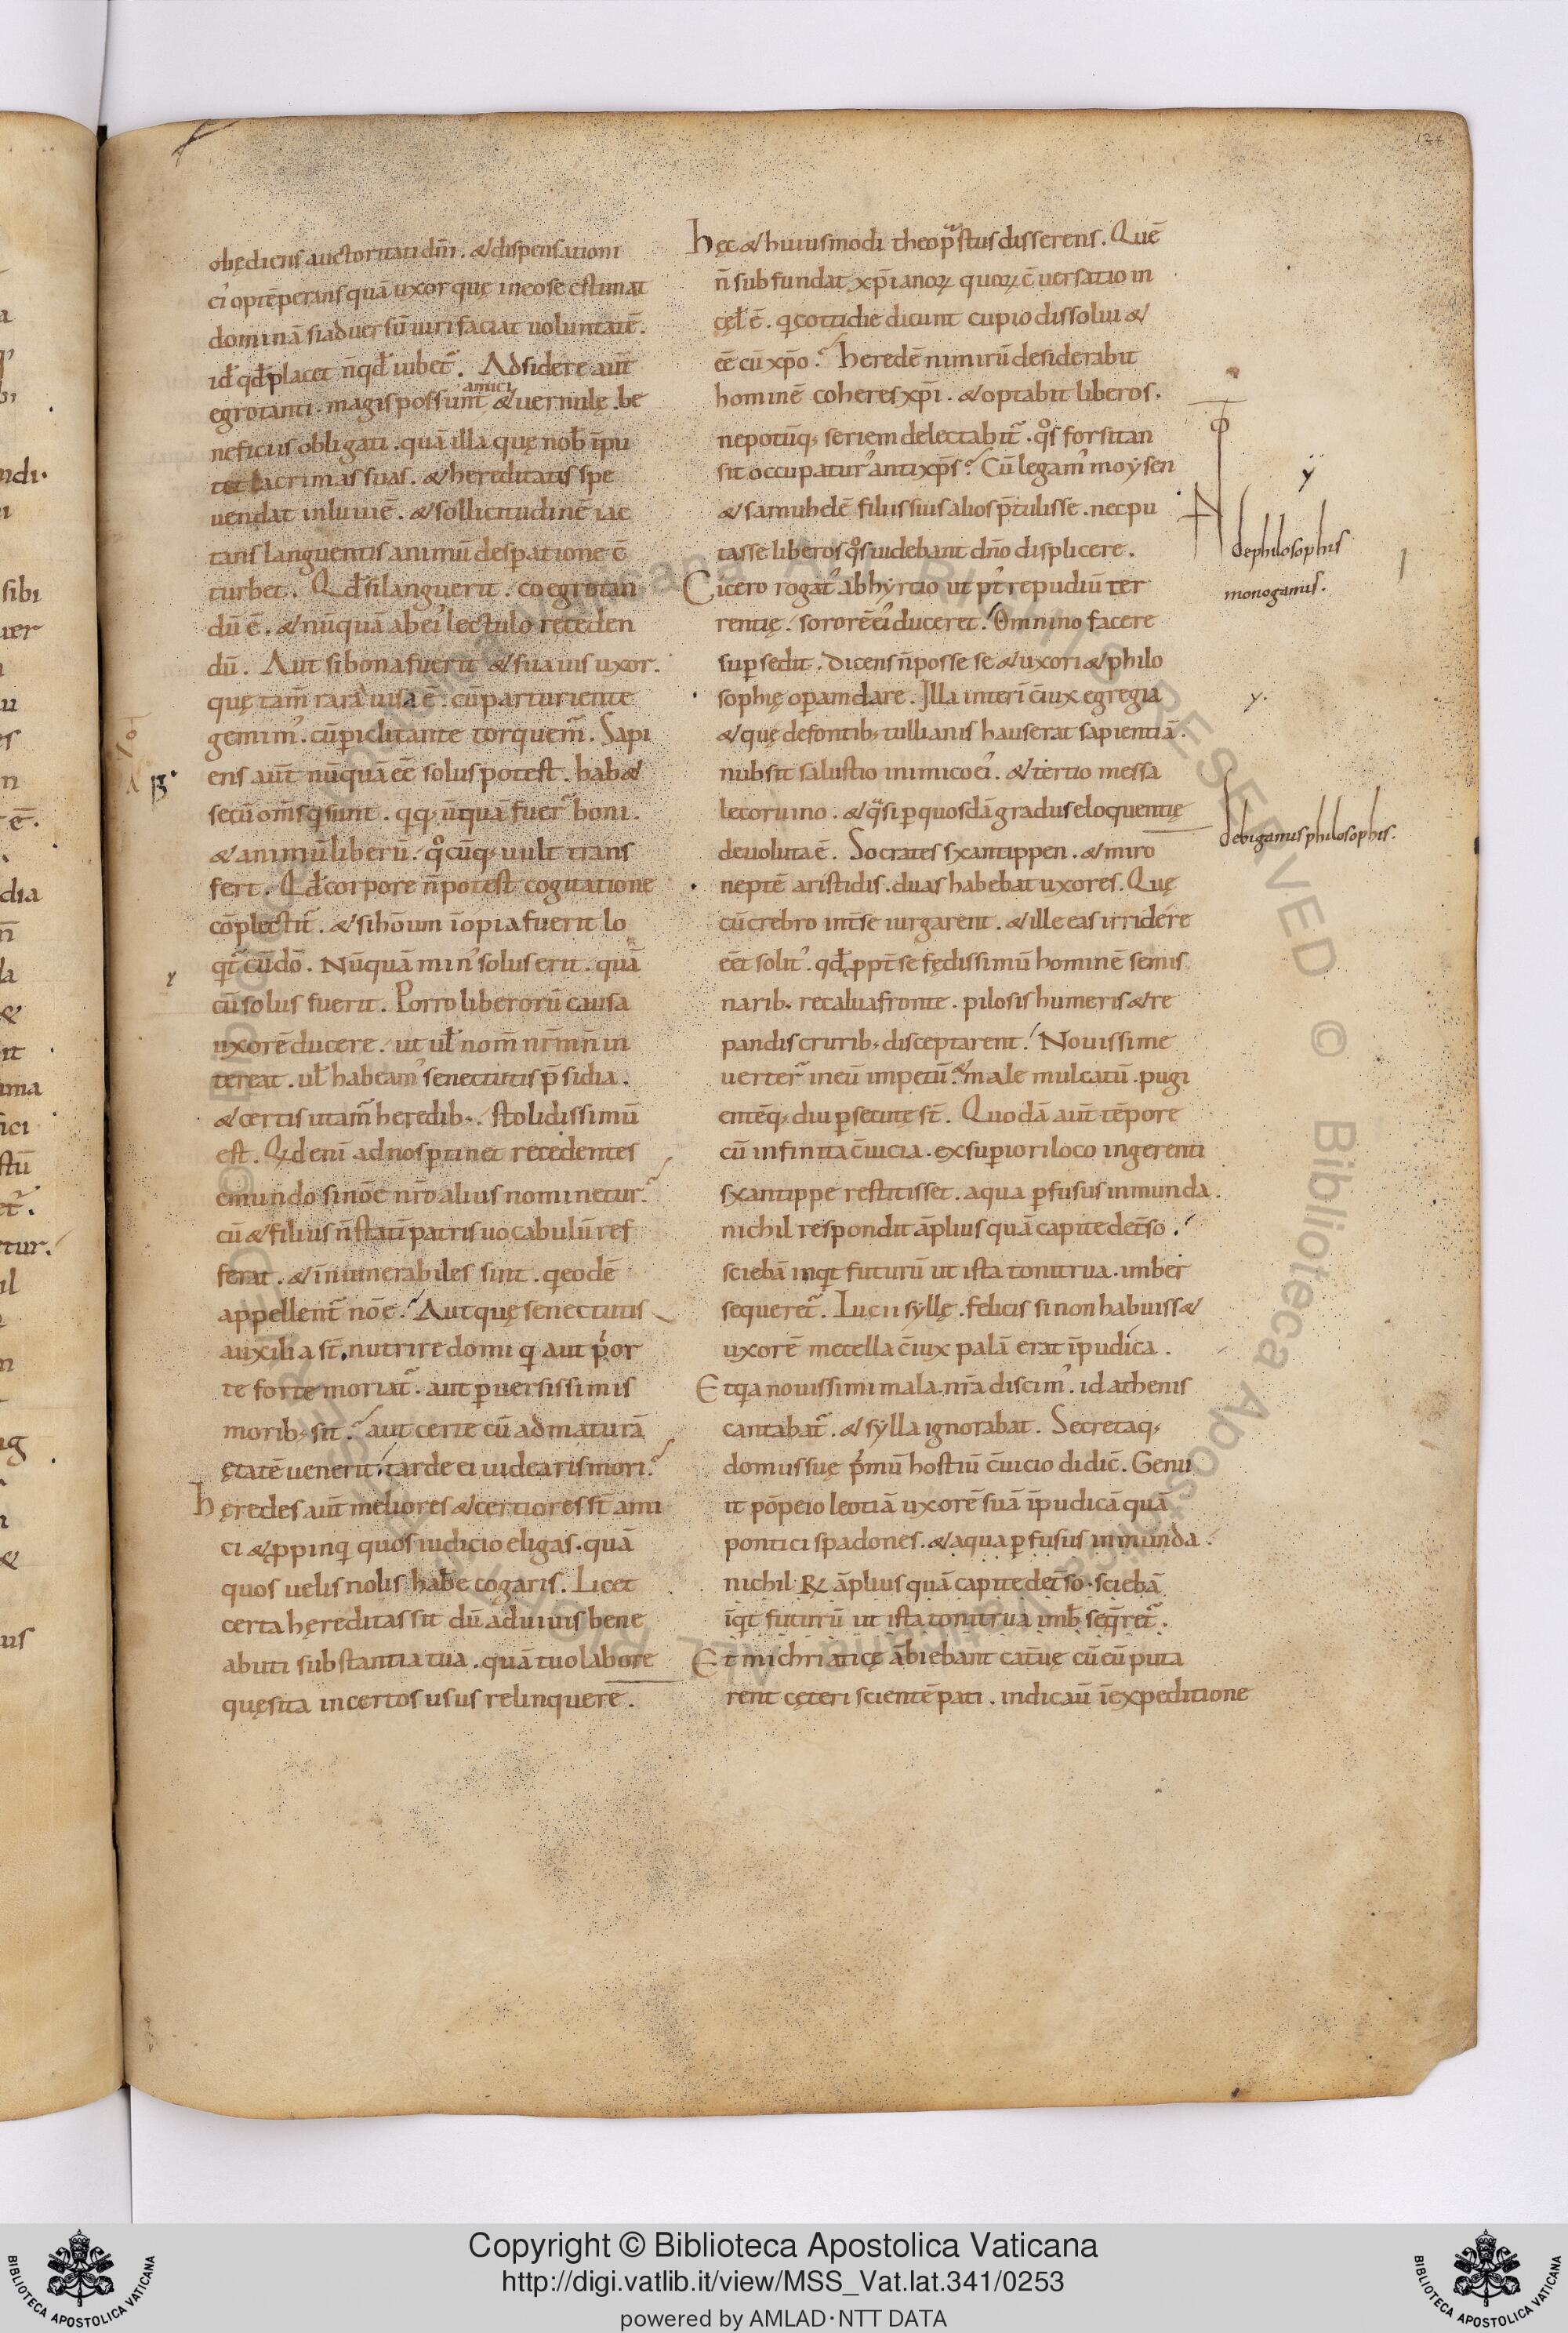 124
obędiens auctoritati dñi. & dispensationi
ei' optēperans quā uxor quę in eo se estimat
dominā si aduersū uiri faciat uoluntatē.
id qđ placet ñ qđ iubet̃. Adsidere aūt
amici
egrotanti. magis possunt & uernulę. be
neficiis obligati. quā illa quę nob̄ īpu
tet lacrimas suas. & hereditatis spe
uendat inluuiē. & sollicitudinē iac
tans languentis animū desperatione c̄
turbet. Qđ si languerit. coegrotan
dū ē. & nūquā ab ei' lectulo receden
dū. Aut si bona fuerit & suauis uxor.
quę tam̄ rara auis ē. cū parturiente
gemim'. cū periclitante torquem̃. Sapi
ens aūt nūquā eē solus potest. hab&
secū om̄s q sunt. qq; ūquā fuer̃ boni.
& animū liberū. q̊cūq; uult trans
fert. Qđ corpore ñ potest cogitatione
cōplectit̃. & si hōum īopia fuerit lo
qt̃ cū dō. Nūquā min' solus erit. quā
cū solus fuerit. Porro liberorū causa
uxorē ducere. ut ul̄ nom̄ nr̄m ñ in
tereat. ul̄ habeam' senectutis p̄sidia.
& certis utam̃ heredib;. stolidissimū
est. Qd enī ad nos pertinet recedentes
e mundo si noē nr̄o alius nominetur.
cū & filius ñ statī patris uocabulū ref
ferat. & innumerabiles sint. q eodē
appellent̃ nōe. Aut quę senectutis
auxilia st̄. nutrire domi q aut prior
te forte moriat̃. aut peruersissimis
morib; sit. aut certe cū ad maturā
ętatē uenerit. tarde ei uidearis mori.
Hęredes aūt meliores & certiores st̄ ami
ci & ppinq quos iudicio eligas. quā
quos uelis nolis hab̄e cogaris. Licet
certa hęreditas sit dū aduiuis bene
abuti substantia tua. quā tuo labore
quęsita in certos usus relinquere.
Hęc & huiusmodi theoprastus disserens. Quē
ñ subfundat xp̄ianoꝝ quoꝝ c̄uersatio in
cęl̄ ē. q cottidie dicunt cupio dissolui &
eē cū xp̄o. Heredē nimirū desiderabit
hominē coheres xp̄i. & optabit liberos.
nepotūq; seriem delectabit̃. q̊s forsitan
sit occupatur' antixp̄s. Cū legam' moÿsen
& samuhelē filiis suis alios p̄tulisse. nec pu
tasse liberos q̊s uidebant dño displicere.
Cicero rogat' ab hyrcio ut pt' repudiū ter
rentię. sororē ei' duceret. Omnino facere
supersedit. dicens ñ posse se & uxori & philo
sophię operam dare. Illa interī c̄iux egregia
& quę de fontib; tullianis hauserat sapientiā.
nubsit salustio inimico ei'. & tertio messa
le coruino. & qsi per quosdā gradus eloquentię
deuoluta ē. Socrates sxantippen. & miro
neptē aristidis. duas habebat uxores. Quę
cū crebro int̄ se iurgarent. & ille eas irridere
eēt solit'. qđ ppt̄ se fędissimū hominē semis
narib; recalua fronte. pilosis humeris & re
pandis crurib; disceptarent. Nouissime
uerter̃ in eū impetū. & male mulcatū. pugi
entēq; diu persecutę st̄. Quodā aūt tēpore
cū infinita c̄uicia. ex superiori loco ingerenti
sxantippe restitisset. aqua perfusus inmunda.
nichil respondit āplius quā capite det̄so.
sciebā inqt futurū ut ista tonitrua. imber
sequeret̃. Lucii syllę. felicis si non habuiss&
uxorē metella c̄iux palā erat īpudica.
Et qa nouissimi mala nr̄a discim'. id athenis
cantabat̃. & sylla ignorabat. Secretaq;
domus suę primū hostiū c̄uicio didic̄. Genu
it pōpeio leotiā uxorē suā īpudicā quā
pontici spadones. & aqua perfusus inmunda.
nichil R/ āplius quā capite det̄so. sciebā
īqt futurū ut ista tonitrua imb̄ seqret̃.
Et michriaticę ābiebant cat̄uę cū cū puta
rent cęteri scientē pati. indicaū ī expeditione
de philosophis
monogamis.
de bigamis philosophis.
Copyright © Biblioteca Apostolica Vaticana
http://digi.vatlib.it/view/MSS_Vat.lat.341/0253
powered by AMLAD·NTT DATA
BIBLIOTECA APOSTOLICA VATICANA
BIBLIOTECA APOSTOLICA VATICANA